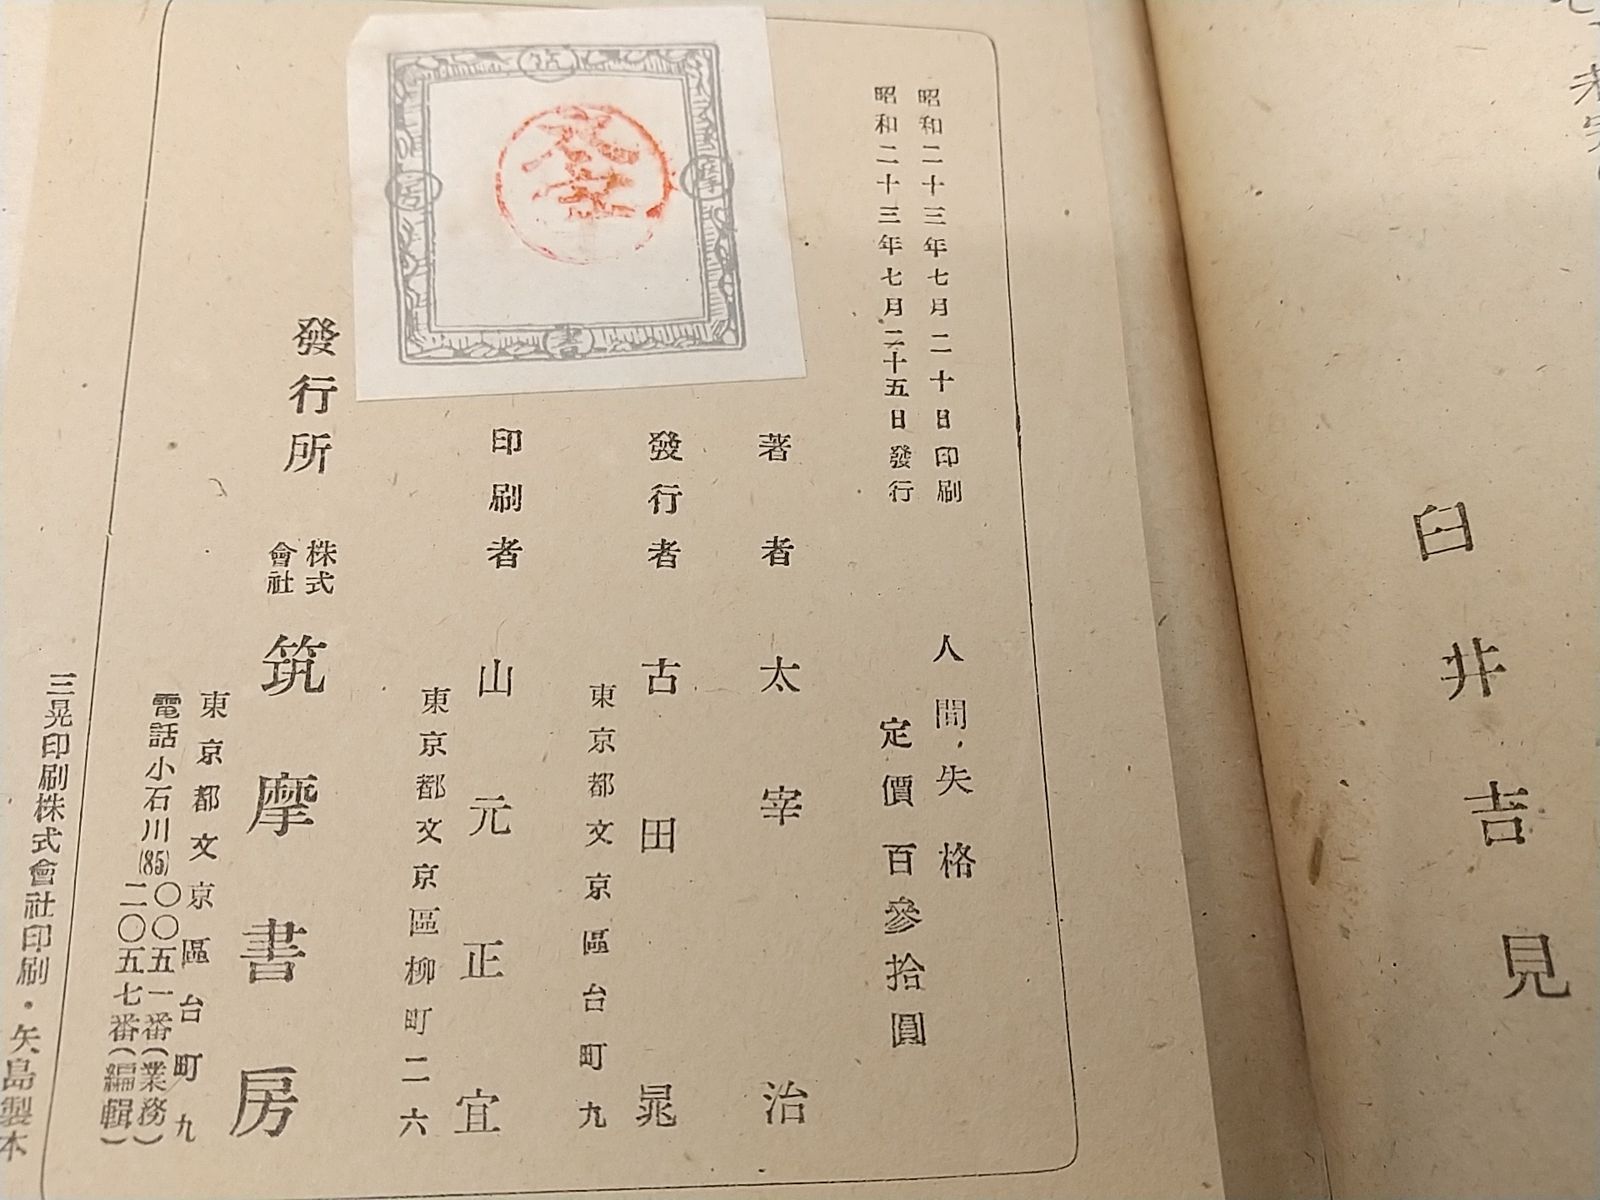 臼井吉見
昭和二十三年七月二十日印刷
昭和二十三年七月二十五日發行
人間失格
定價百參拾圓
著者 太宰治
發行者 古田晁
東京都文京區台町九
印刷者 山元正宜
東京都文京區柳町二六
發行所 株式會社 筑摩書房
東京都文京區台町九
電話小石川(85)〇〇五一番(業務)
二〇五七番(編輯)
三晃印刷株式會社印刷・矢島製本
筑
摩
書
房
太宰